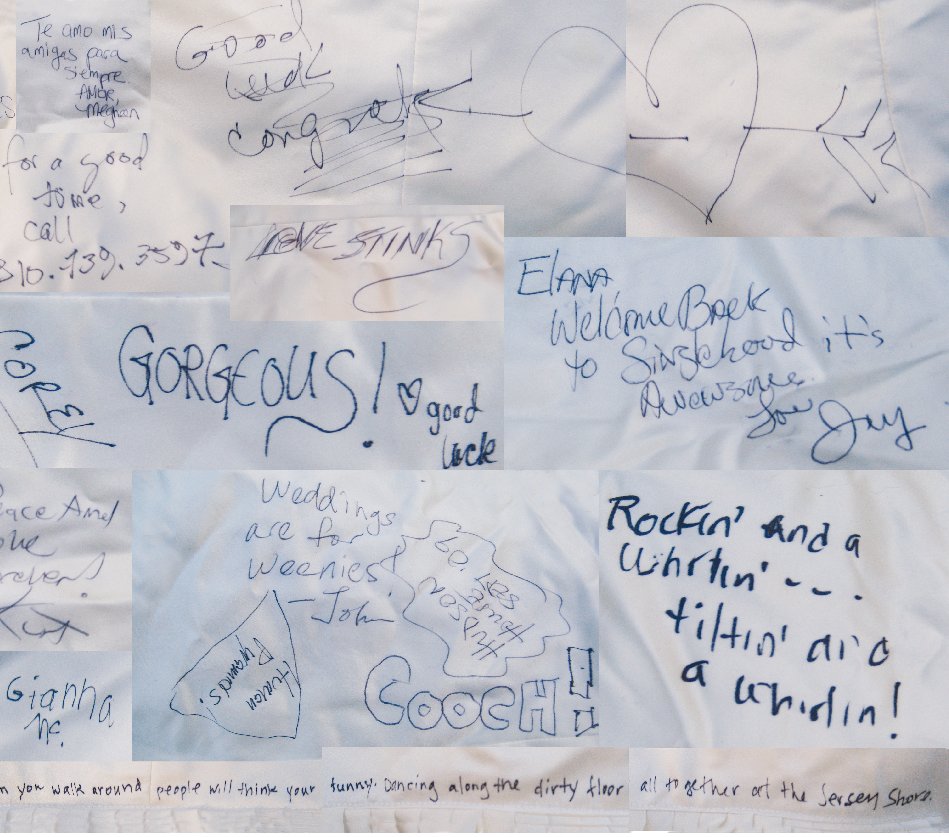 Te amo mis
amigas para
siempre.
Amor,
Meghan
Good
luck
congrats
for a good
time,
call
310.739.3597
LOVE STINKS
ELANA
Welcome Back
to Singlehood it's
Awesome.
Love Jay
COREY
GORGEOUS!
good
luck
Peace And
Kurt
Weddings
are for
Weenies!
- John
Human
Pyramids!
Hudson
House
COOCH!!
Rockin' and a
Whirlin' - - -
tiltin' and
a whirlin!
Gianna
N.
n you walk around people will think your funny. Dancing along the dirty floor all together at the Jersey Shore.